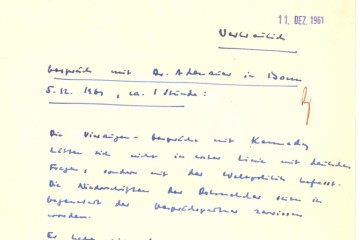 11. DEZ. 1961
Vertraulich
Gespräch mit Dr. Adenauer in Bonn
5.12.1961, ca. 1 Stunde:
Die Vieraugen-Gespräche mit Kennedy
hätten sich nicht in erster Linie mit deutschen
Fragen, sondern mit der Weltpolitik befasst.
Die Niederschriften der Dolmetscher seien in
Gegenwart der Gesprächspartner zerrissen
worden.